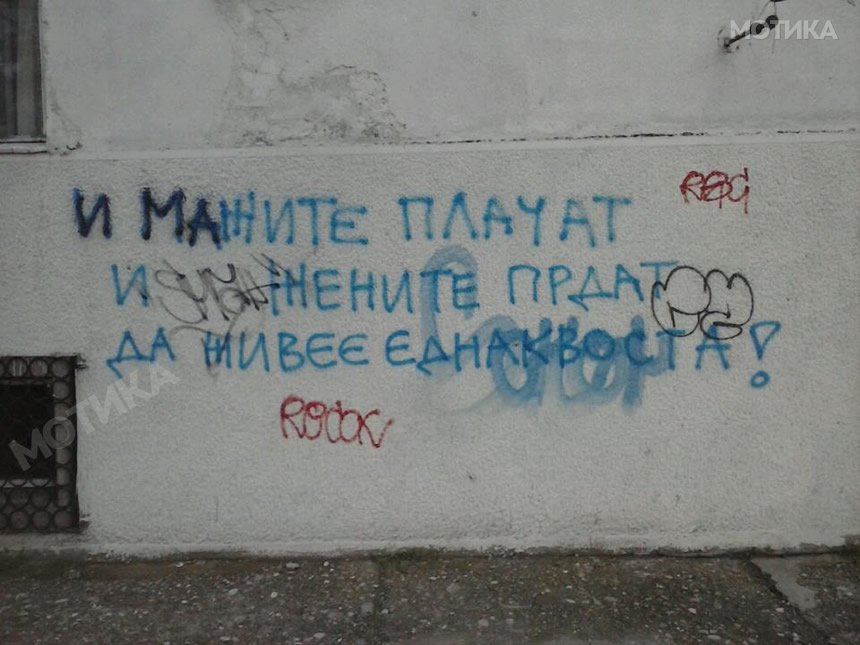 МОТИКА
RBG
И МАЖИТЕ ПЛАЧАТ
И ЖЕНИТЕ ПРДАТ
ДА ЖИВЕЕ ЕДНАКВОСТА!
МОТИКА